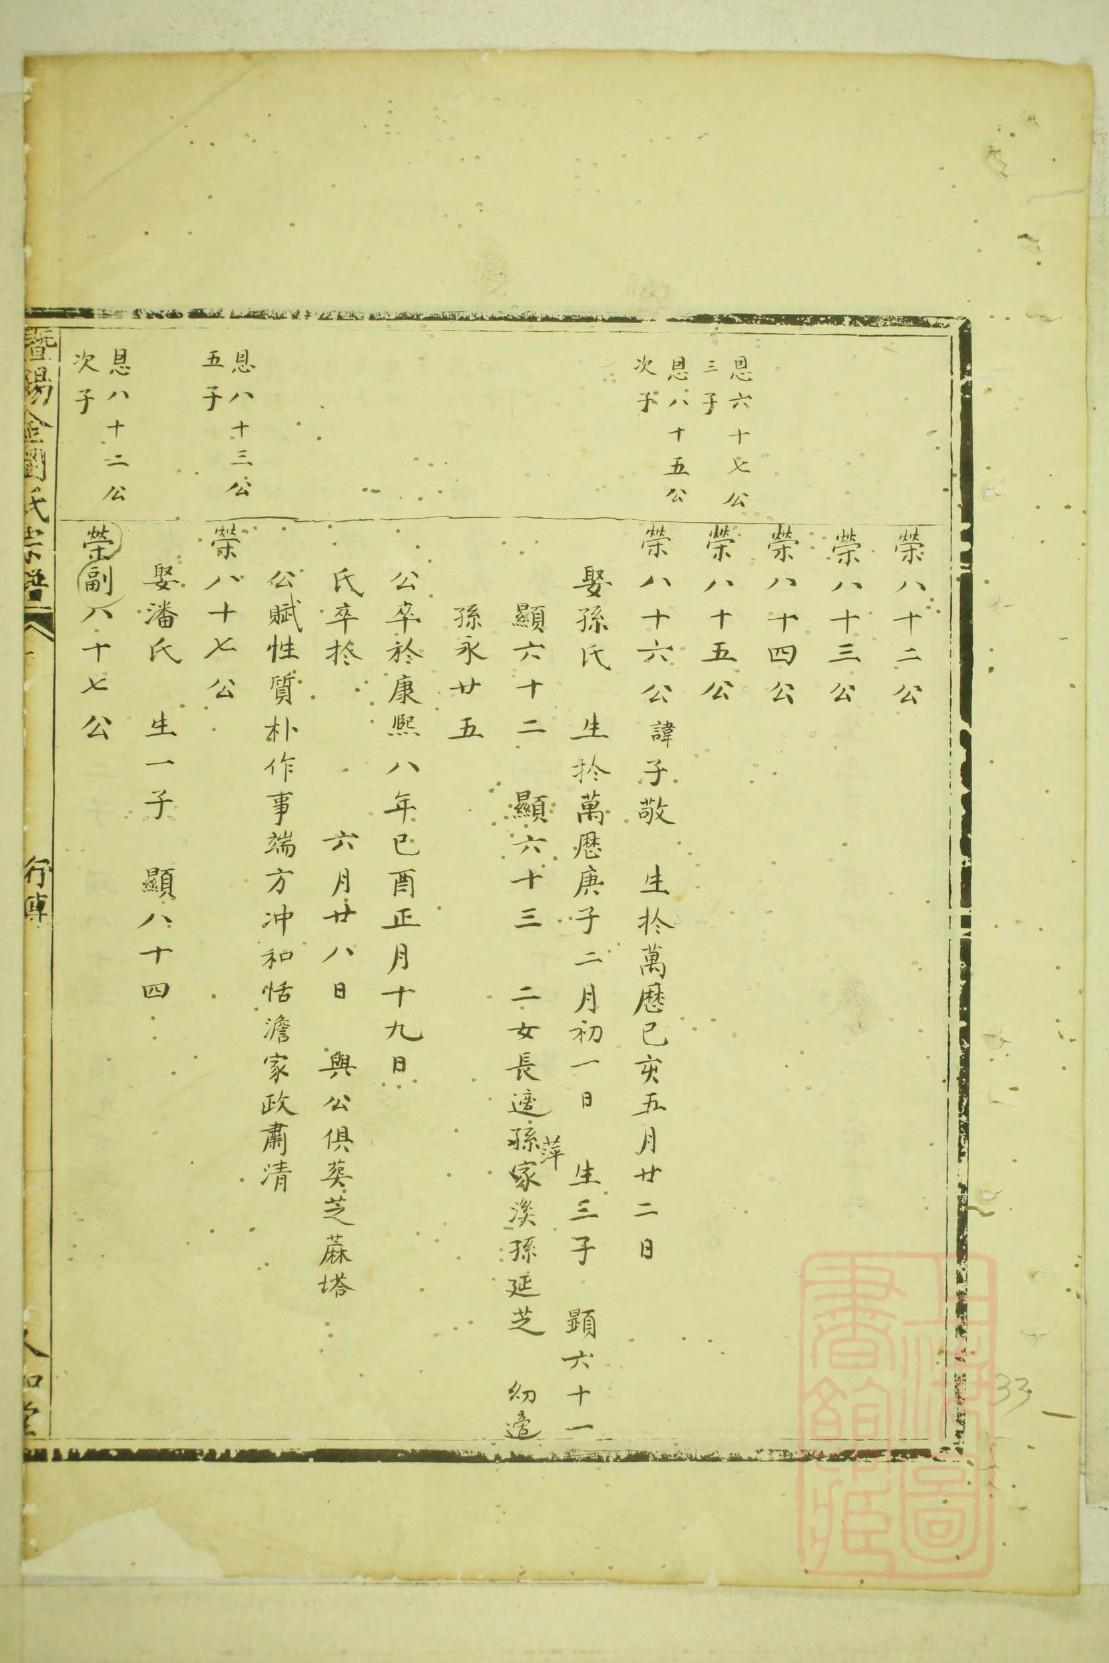 榮八十二公
榮八十三公
榮八十四公
恩六十七公
三子
榮八十五公
恩八十五公
次子
榮八十六公諱子敬 生於萬曆己亥五月廿二日
娶孫氏 生於萬曆庚子二月初一日 生三子 顯六十一
顯六十二 顯六十三 二女長適孫家溪孫延芝 幼適
萍
孫永廿五
公卒於康熙八年己酉正月十九日
氏卒於 六月廿八日 與公俱葵芝蔴塔
公賦性質朴作事端方冲和恬澹家政肅清
恩八十三公
五子
榮八十七公
娶潘氏 生一子 顯八十四
恩八十二公
次子
榮副八十七公
暨陽 氏宗譜
行傳
人和堂
上海圖書館藏
33